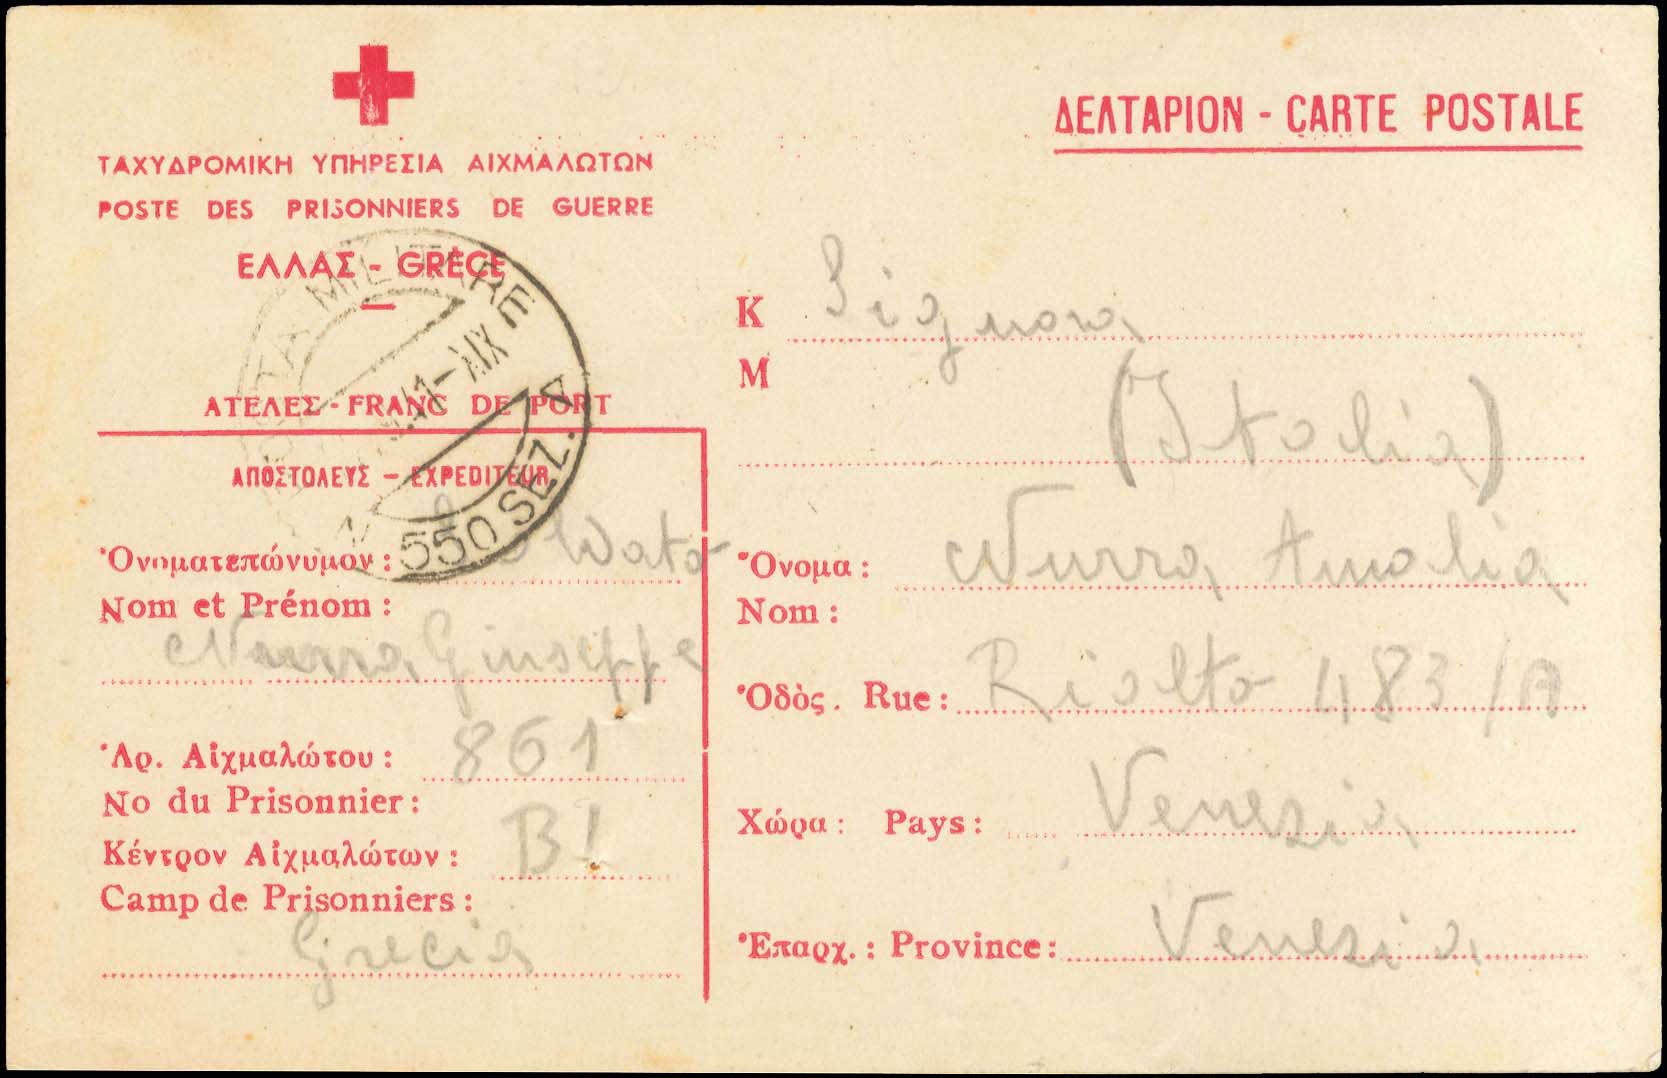 ΤΑΧΥΔΡΟΜΙΚΗ ΥΠΗΡΕΣΙΑ ΑΙΧΜΑΛΩΤΩΝ
POSTE DES PRISONNIERS DE GUERRE
ΕΛΛΑΣ - GRÈCE
ΑΤΕΛΕΣ - FRANC DE PORT
POSTA MILITARE
41 - XIX
N. 550 SEZ. A
ΑΠΟΣΤΟΛΕΥΣ - EXPEDITEUR
Ὀνοματεπώνυμον : Soldato
Nom et Prénom :
Nurra Giuseppe
Ἀρ. Αἰχμαλώτου : 861
No du Prisonnier :
Κέντρον Αἰχμαλώτων : B1
Camp de Prisonniers :
Grecia
ΔΕΛΤΑΡΙΟΝ - CARTE POSTALE
Κ Signora
M
(Italia)
Ὄνομα : Nurra Amalia
Nom :
Ὀδὸς. Rue : Rialto 483/A
Χώρα : Pays : Venezia
Ἐπαρχ. : Province : Venezia